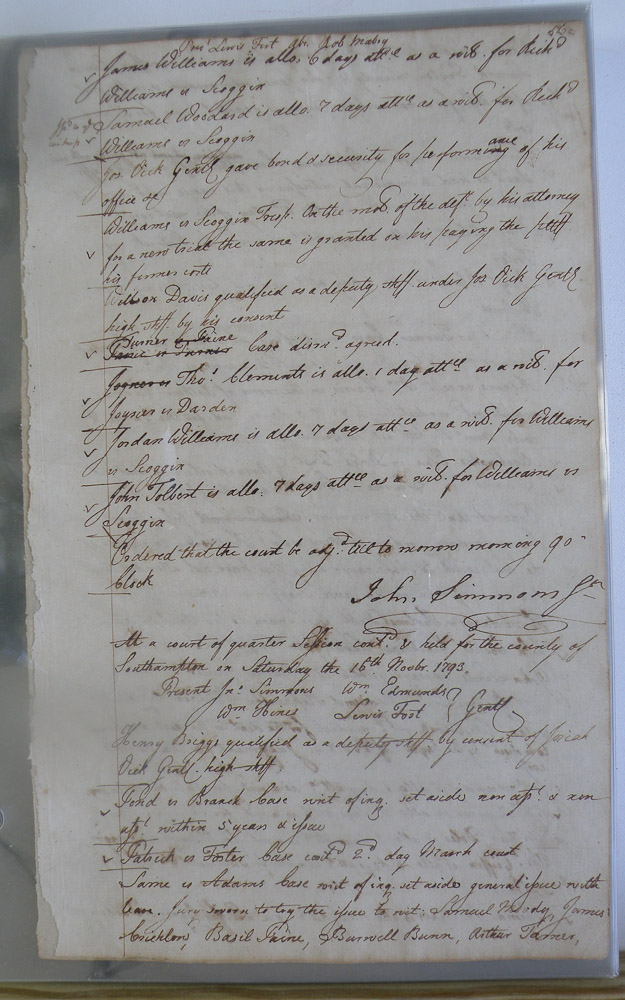 Pres.t Lewis Fort abs. Rob Mabry
James Williams is allo. 6 days att.ce as a wit. for Rich.d
Williams vs Scoggin
Samuel Woodard is allo. 7 days att.ce as a wit. for Rich.d
Williams vs Scoggin
Jos. Dick Gentl. gave bond & security for performance of his
office &c
Williams vs Scoggin Tresp. On the mo.n of the def.t by his attorney
for a new trial the same is granted on his paying the pltff
his former costs
Wilson Davis qualified as a deputy shff. under Jos Dick Gentl.
high shff. by his consent
Turner vs Paine
Case dism.d agreed.
Joyner vs Tho.s Clements is allo. 1 day att.ce as a wit. for
Joyner vs Darden
Jordan Williams is allo. 7 days att.ce as a wit. for Williams
vs Scoggin
John Tolbert is allo. 7 days att.ce as a wit. for Williams vs
Scoggin
Ordered that the court be adj.d till to morrow morning 9 o
Clock
John Simmons
At a court of quarter Session cont.d & held for the county of
Southampton on Saturday the 16th Novbr. 1793.
Present Jn.o Simmons Wm Edmunds
Wm Hines Lewis Fort Gentl.
Henry Briggs qualified as a deputy shff by consent of Josiah
Dick Gentl. high shff
Pond vs Branch Case writ of inq. set aside non ass.t & non
ass.t within 5 years & issue
Patrick vs Foster Case cont.d 2.d day March court
Same vs Adams Case writ of inq. set aside general issue with
leave. Jury sworn to try the issue to wit: Samuel Moody, James
Crichlow, Basil Paine, Burwell Bunn, Arthur Turner,